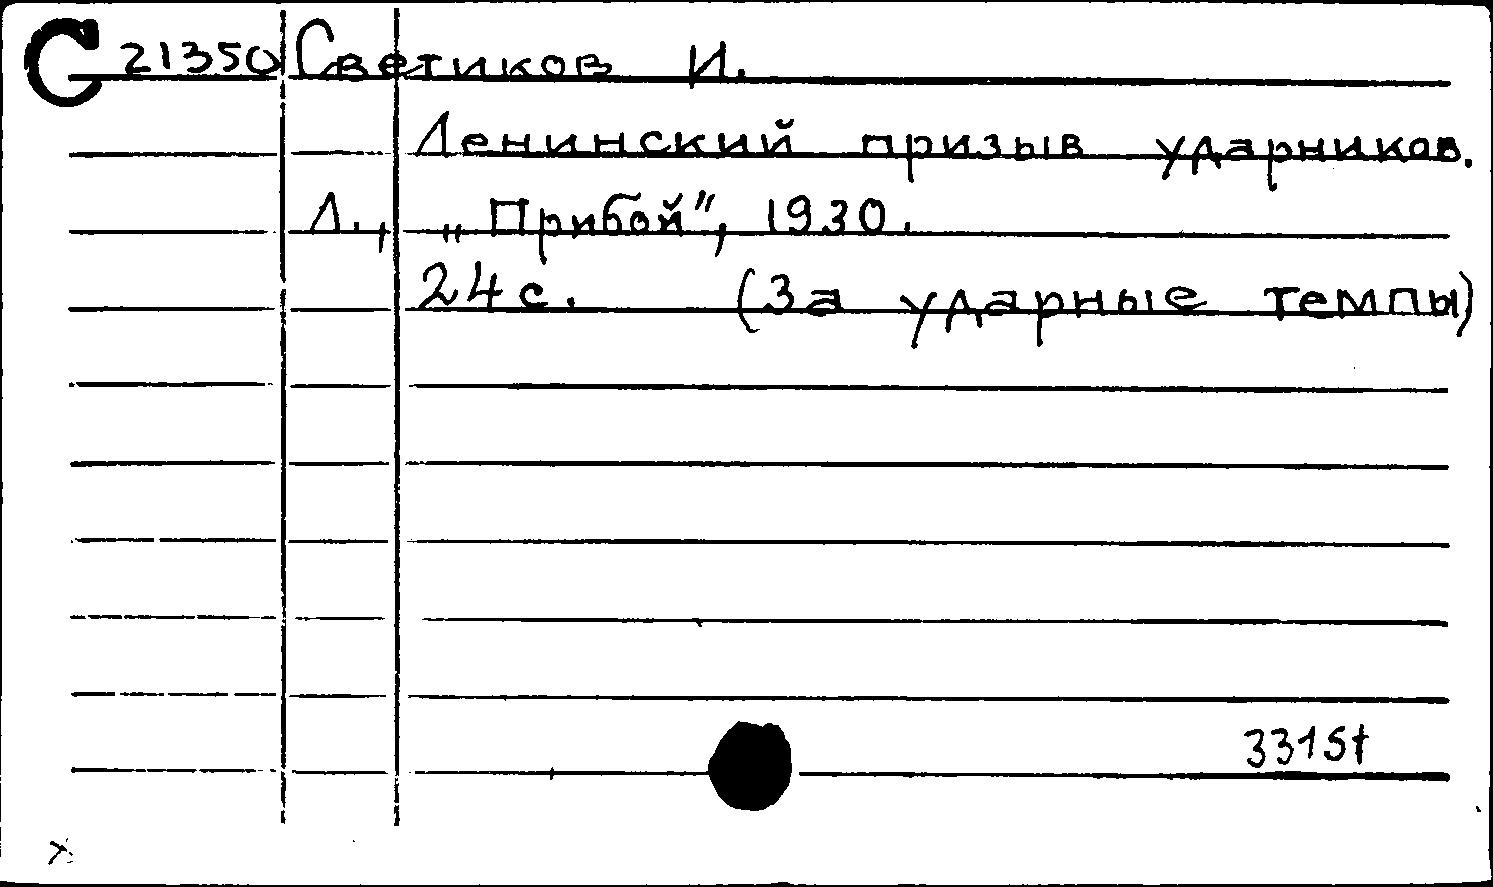 С 21350 Светиков И.
Ленинский призыв ударников.
Л., „Прибой", 1930.
24 с. (За ударные темпы)